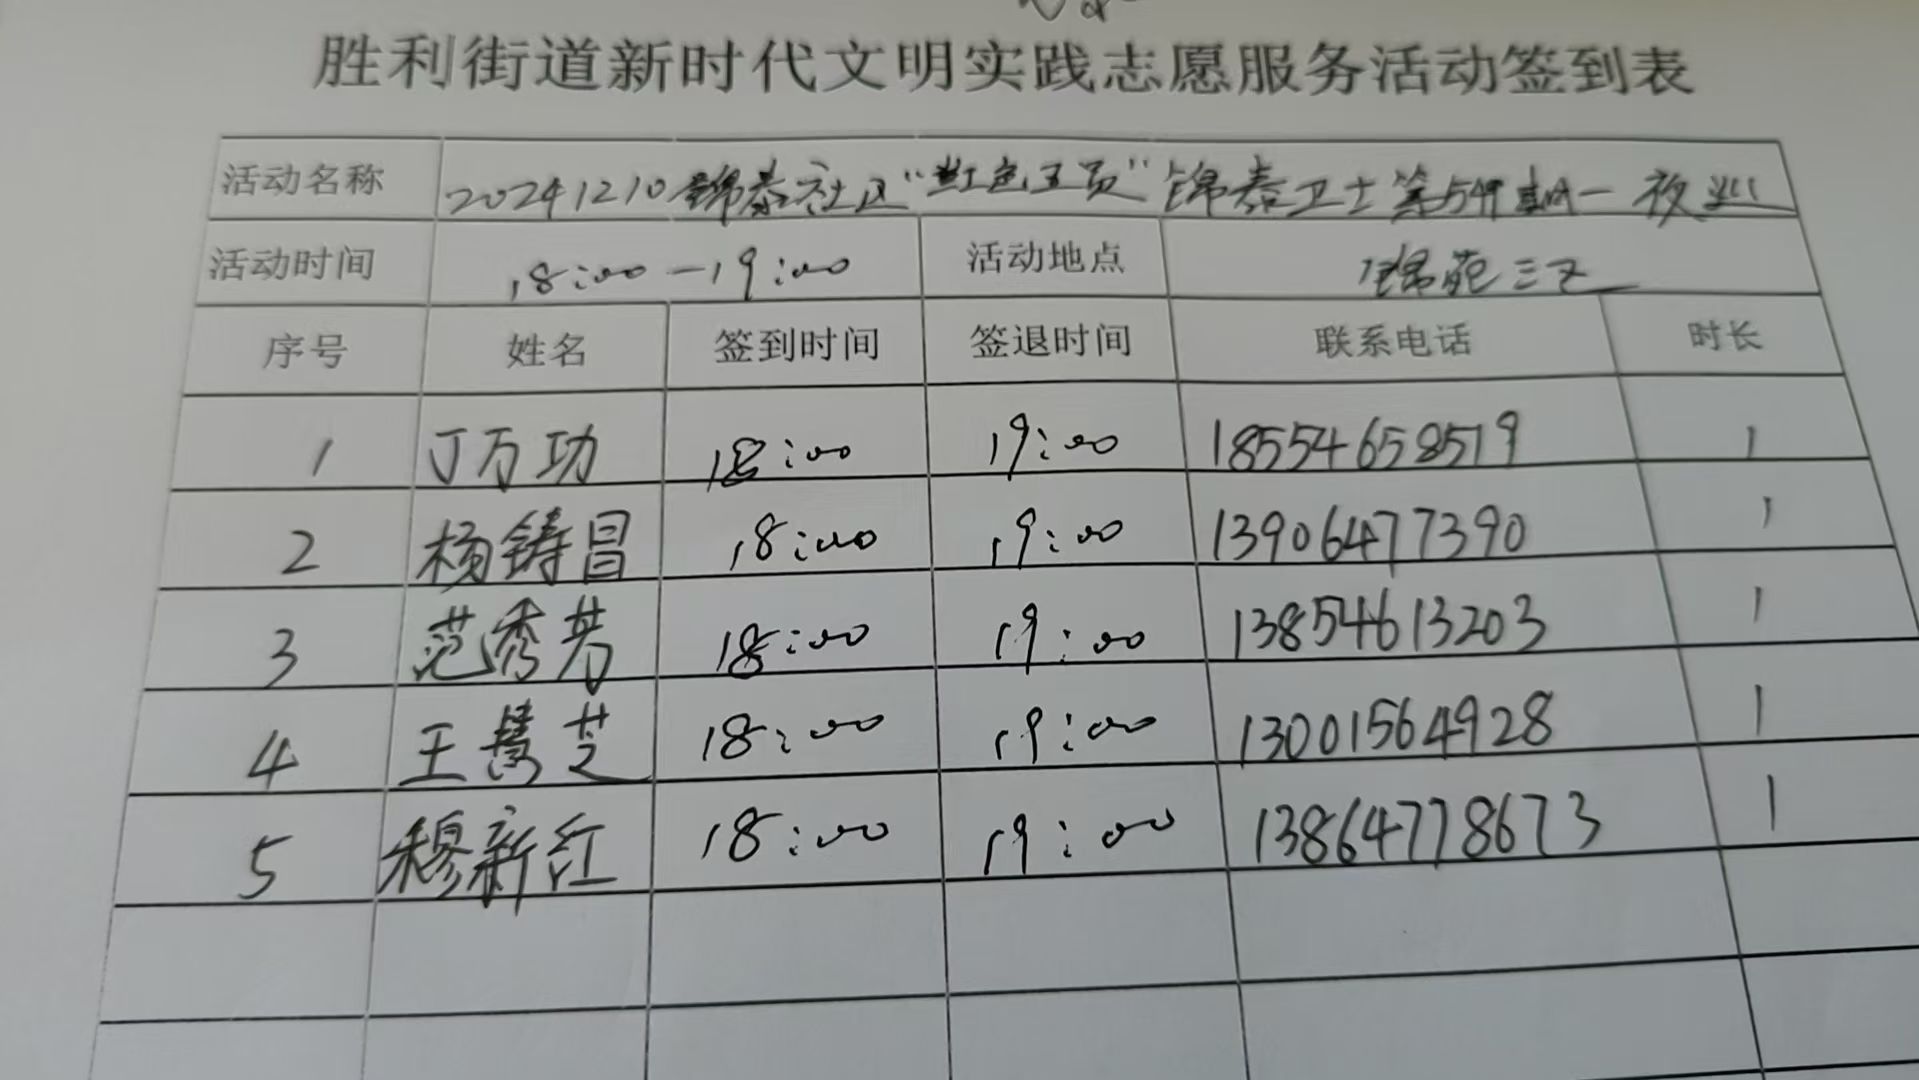 胜利街道新时代文明实践志愿服务活动签到表
活动名称 20241210锦泰社区“红色五员”锦泰卫士第549期一夜巡
活动时间 18:00-19:00 活动地点 锦苑三区
序号 姓名 签到时间 签退时间 联系电话 时长
1 丁万功 18:00 19:00 18554658519 1
2 杨铸昌 18:00 19:00 13906477390 1
3 范秀芳 18:00 19:00 13854613203 1
4 王芝 18:00 19:00 13001564928 1
5 穆新红 18:00 19:00 13864778673 1